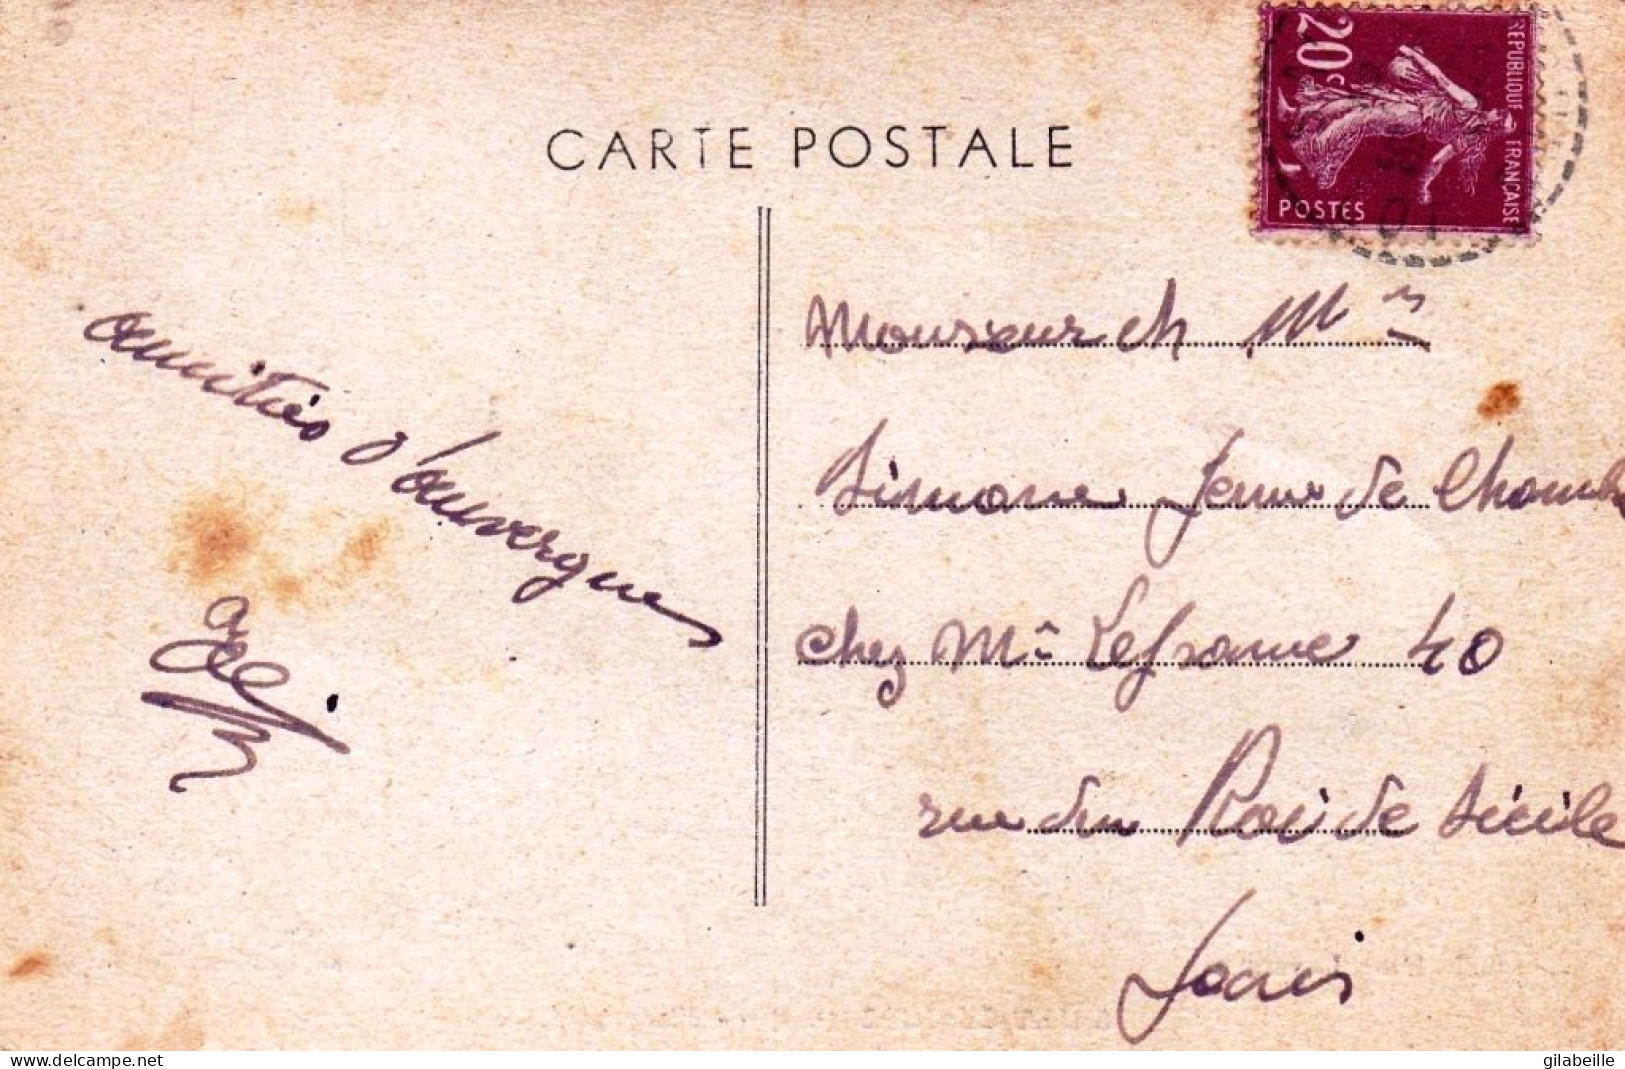 CARTE POSTALE
20c
REPUBLIQUE FRANÇAISE
POSTES
amitiés d'auvergne
Monsieur et Mme
Simone de
chez Mr Lefranc 40
rue du Roi de Sicile
Paris
www.delcampe.net
gilabeille